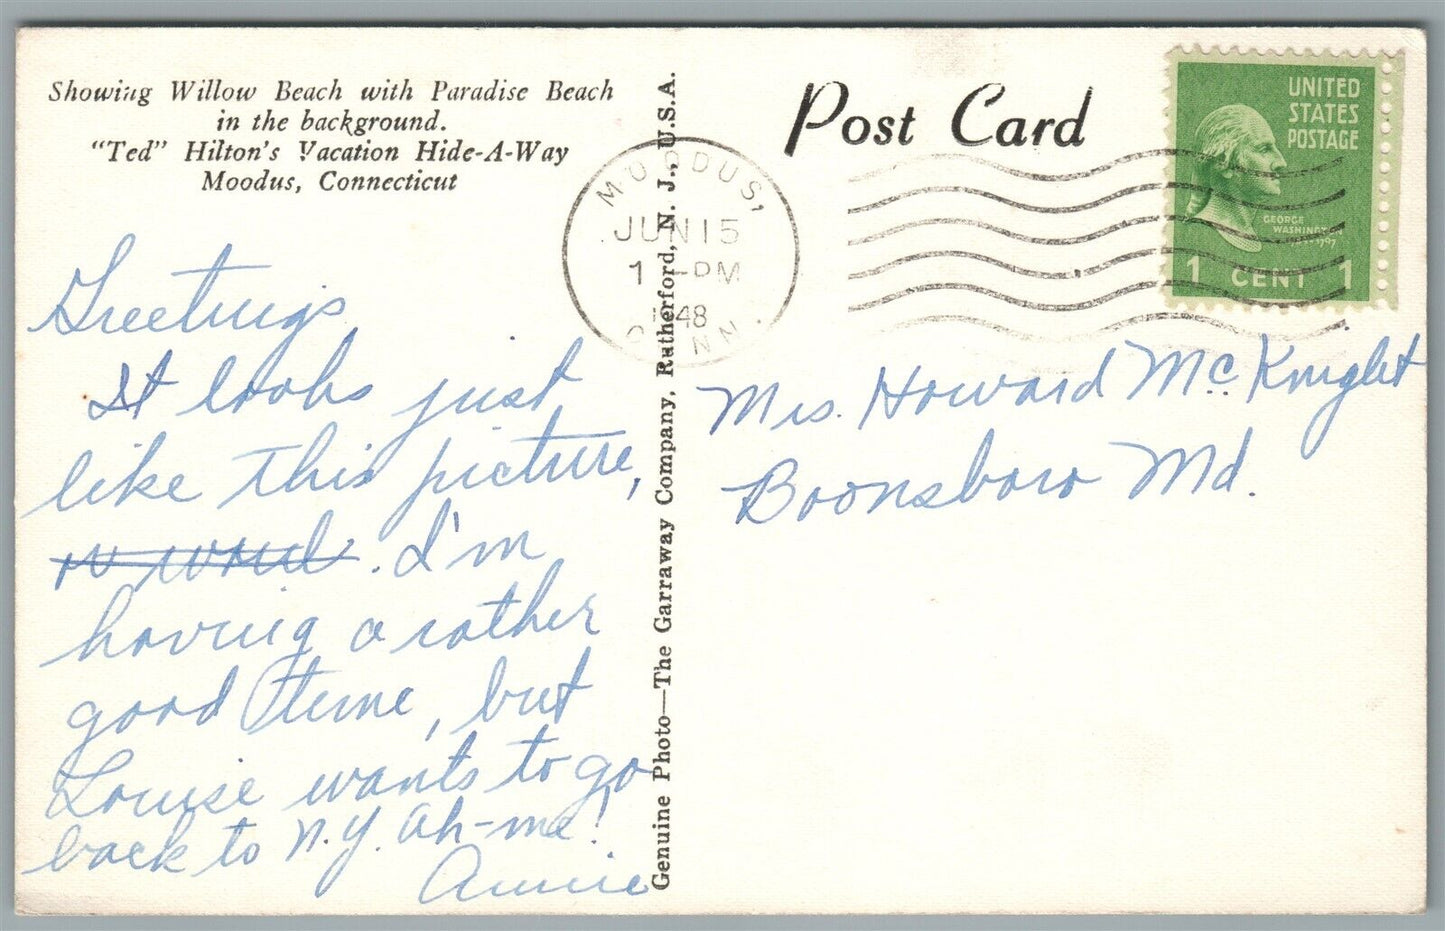 Showing Willow Beach with Paradise Beach
in the background.
"Ted" Hilton's Vacation Hide-A-Way
Moodus, Connecticut
Greetings
It looks just
like this picture,
. I'm
having a rather
good time, but
Louise wants to go
back to N.Y. Ah-me!
Annie
Genuine Photo—The Garraway Company, Rutherford, N. J., U.S.A.
Post Card
MOODUS,
JUN 15
1 -PM
1948
CONN.
UNITED
STATES
POSTAGE
GEORGE
WASHINGTON
1 CENT 1
Mrs. Howard McKnight
Boonsboro Md.